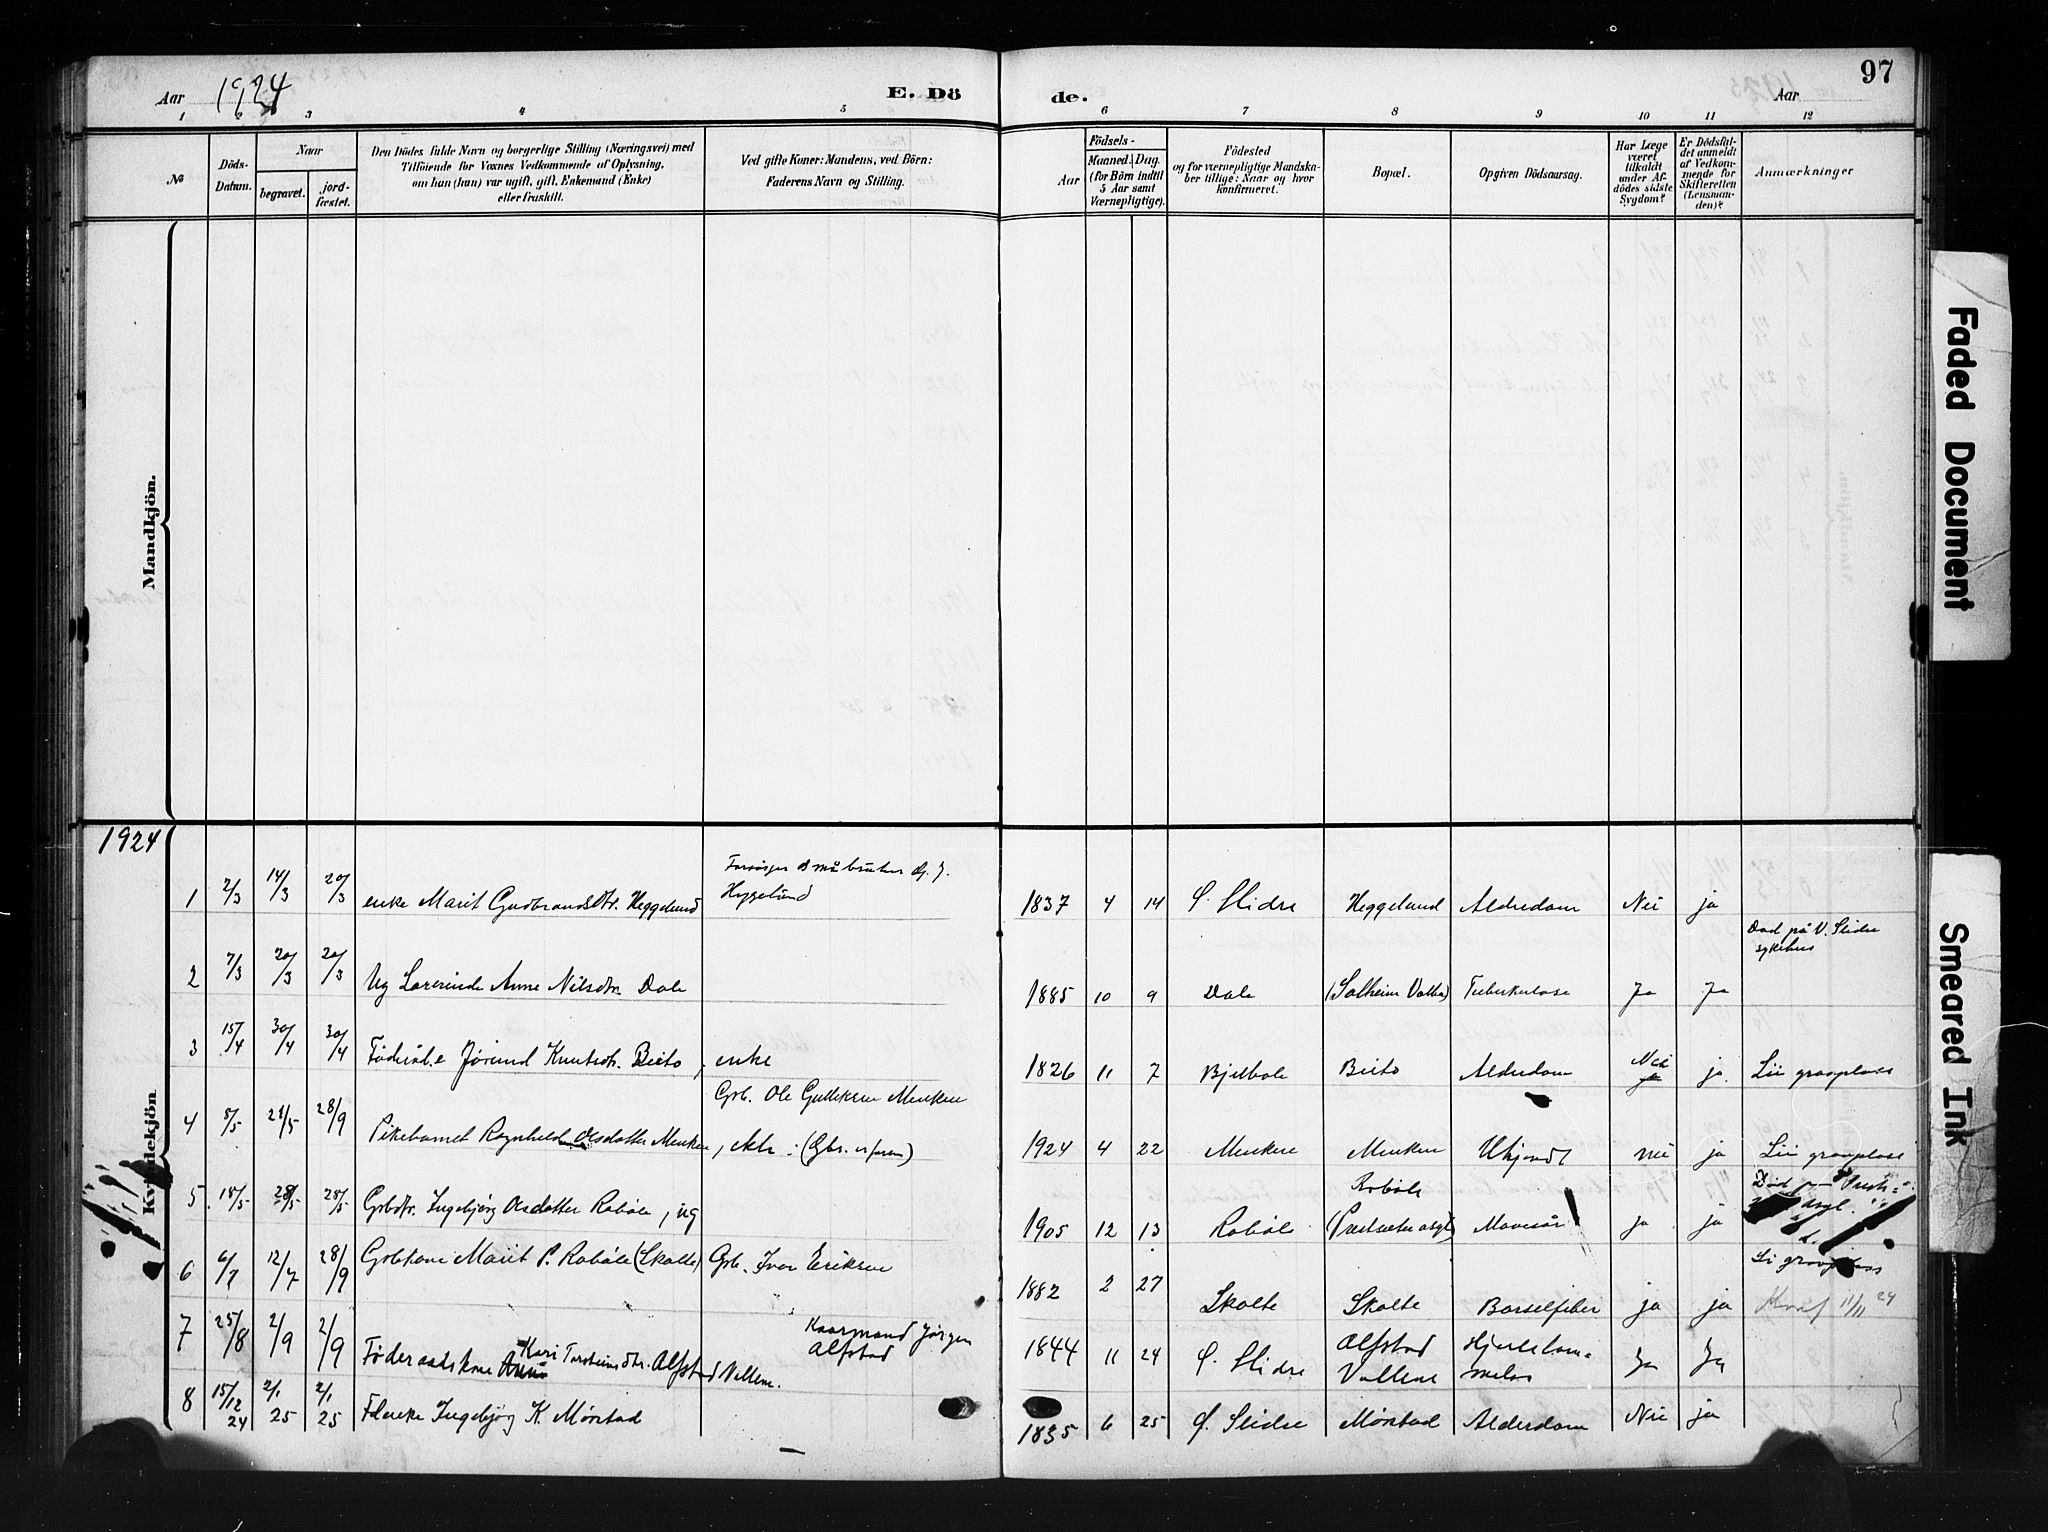 Aar 1924
E. Dö
de.
Aar
97
1 2 3 4 5 6 7 8 9 10 11 12
№
Döds-
Datum.
Naar
begravet.
jord-
fæstet.
Den Dödes fulde Navn og borgerlige Stilling (Næringsvei) med
Tilföiende for Voxnes Vedkommende af Oplysning,
om hun (han) var ugift, gift, Enkemand (Enke)
eller fraskilt.
Ved gifte Koner: Mandens, ved Börn:
Faderens Navn og Stilling.
Födsels-
Aar
Maaned. Dag.
(for Börn indtil
5 Aar samt
Værnepligtige).
Födested
og for værnepligtige Mandska-
ber tillige: Naar og hvor
konfirmeret.
Bopæl.
Opgiven Dödsaarsag.
Har Læge
været
tilkaldt
under Af-
dödes sidste
Sygdom?
Er Dödsfal-
det anmeldt
af Vedkom-
mende for
Skifteretten
(Lensman-
den)?
Anmærkninger
Mandkjön.
Kvindekjön
1924
Heggelund
1 2/3 14/3 20/3 enke Marit Gudbrandsdtr. Heggelund 1837 4 14 Ø. Slidre Heggelund Alderdom Nei ja
Død på V. Slidre
sykehus
2 7/3 20/3 20/3 Ug Lærerinde Anne Nilsdtr. Dale 1885 10 9 Dale (Solheim Volbu) Tuberkulose Ja Ja
3 15/4 30/4 30/4 Jørund Knutsdtr. Beito, enke 1826 11 7 Beito Alderdom Nei ja. Lii gravplass
Grb. Ole Gulliksen Menken
4 8/5 28/5 28/9 Pikebarnet Ragnhild Olsdatter Menken, ekte 1924 4 22 Menken Menken Ukjendt Nei ja Lii gravplass
Robøle
5 18/5 28/5 28/5 Grbdtr. Ingebjørg Olsdatter Robøle, ug 1905 12 13 Robøle ja ja
6 6/7 12/7 28/9 Grbkone Marit P. Robøle (Skolte) Grb. Ivar Eriksen 1882 2 27 Skolte Skolte Barselfeber ja ja Li gravplass
11/11 24
Kaarmand Jørgen
Alfstad
7 25/8 2/9 2/9 Føderaadskone Kari Torsteinsdtr. Alfstad Vollene. 1844 11 24 Ø. Slidre Alfstad
Vollene Hjertelam-
melse Ja Ja
8 15/12 24 2/1 25 2/1 25 Ingebjørg K. Mørstad 1835 6 25 Ø. Slidre Mørstad Alderdom Nei ja
Faded Document
Smeared Ink